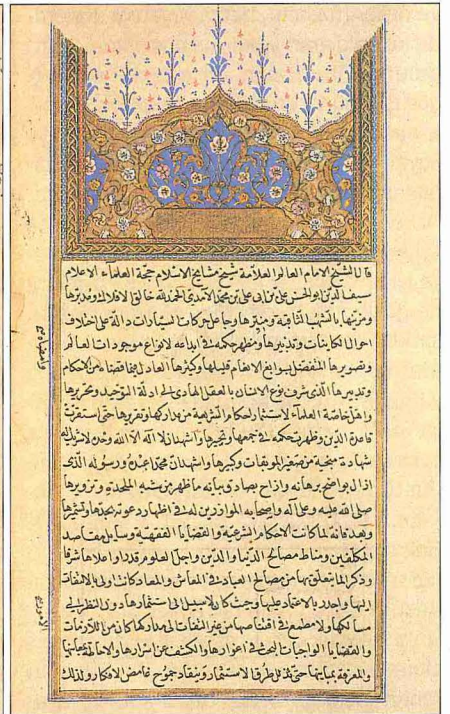 قال الشيخ الامام العالم العلامة شيخ مشايخ الاسلام حجة العلماء الاعلام
سيف الدين ابو الحسن علي بن ابي علي بن محمد الآمدي الحمد لله خالق الافلاك ومديرها
ومزينها بالشهب الثاقبة ومنيرها وجاعل حركات السيارات دالة على اختلاف
احوال الكاينات وتدبيرها ومظهر حكمه في ابداعه لانواع موجودات العالم
وتصويرها المتفضل بسوابغ الانعام قليلها وكثيرها العادل فيما قضاه من الاحكام
وتدبيرها الذي شرف نوع الانسان بالعقل الهادي الى ادلة التوحيد وتحريرها
واهل خاصة العلماء لاستثمار احكام الشريعة من مداركها وتقريرها حتى استقرت
قاعدة الدين وظهرت حكمه في جمعها وتحبيرها واشهد ان لا اله الا الله وحده لا شريك
شهادة منجية من صغير الموبقات وكبيرها واشهد ان محمدا عبده ورسوله الذي
ازال بواضح برهانه وازاح بصادق بيانه ما ظهر من شبه الملحدة وتزويرها
صلى الله عليه وعلى آله واصحابه الموازرين له في اظهار دعوته بحدها وتشيرها
وبعد فانه لما كانت الاحكام الشرعية والقضايا الفقهية وسايل مقاصد
المكلفين ومناط مصالح الدنيا والدين واجل العلوم قدرا واعلاها شرفا
وذكرا لما يتعلق بها من مصالح العباد في المعاش والمعاد كانت اولى بالالتفات
اليها واجدر بالاعتماد عليها وحيث كان لا سبيل الى استثمارها دون النظر في
مسالكها ولا مطمع في اقتناصها من غير التفات الى مداركها كان من اللازمات
والقضايا الواجبات البحث في اغوارها والكشف عن اسرارها والاحاطة بمعانيها
والمعرفة بمبانيها حتى تذلل طرق الاستثمار وينقاد جموح غامض الافكار ولذلك